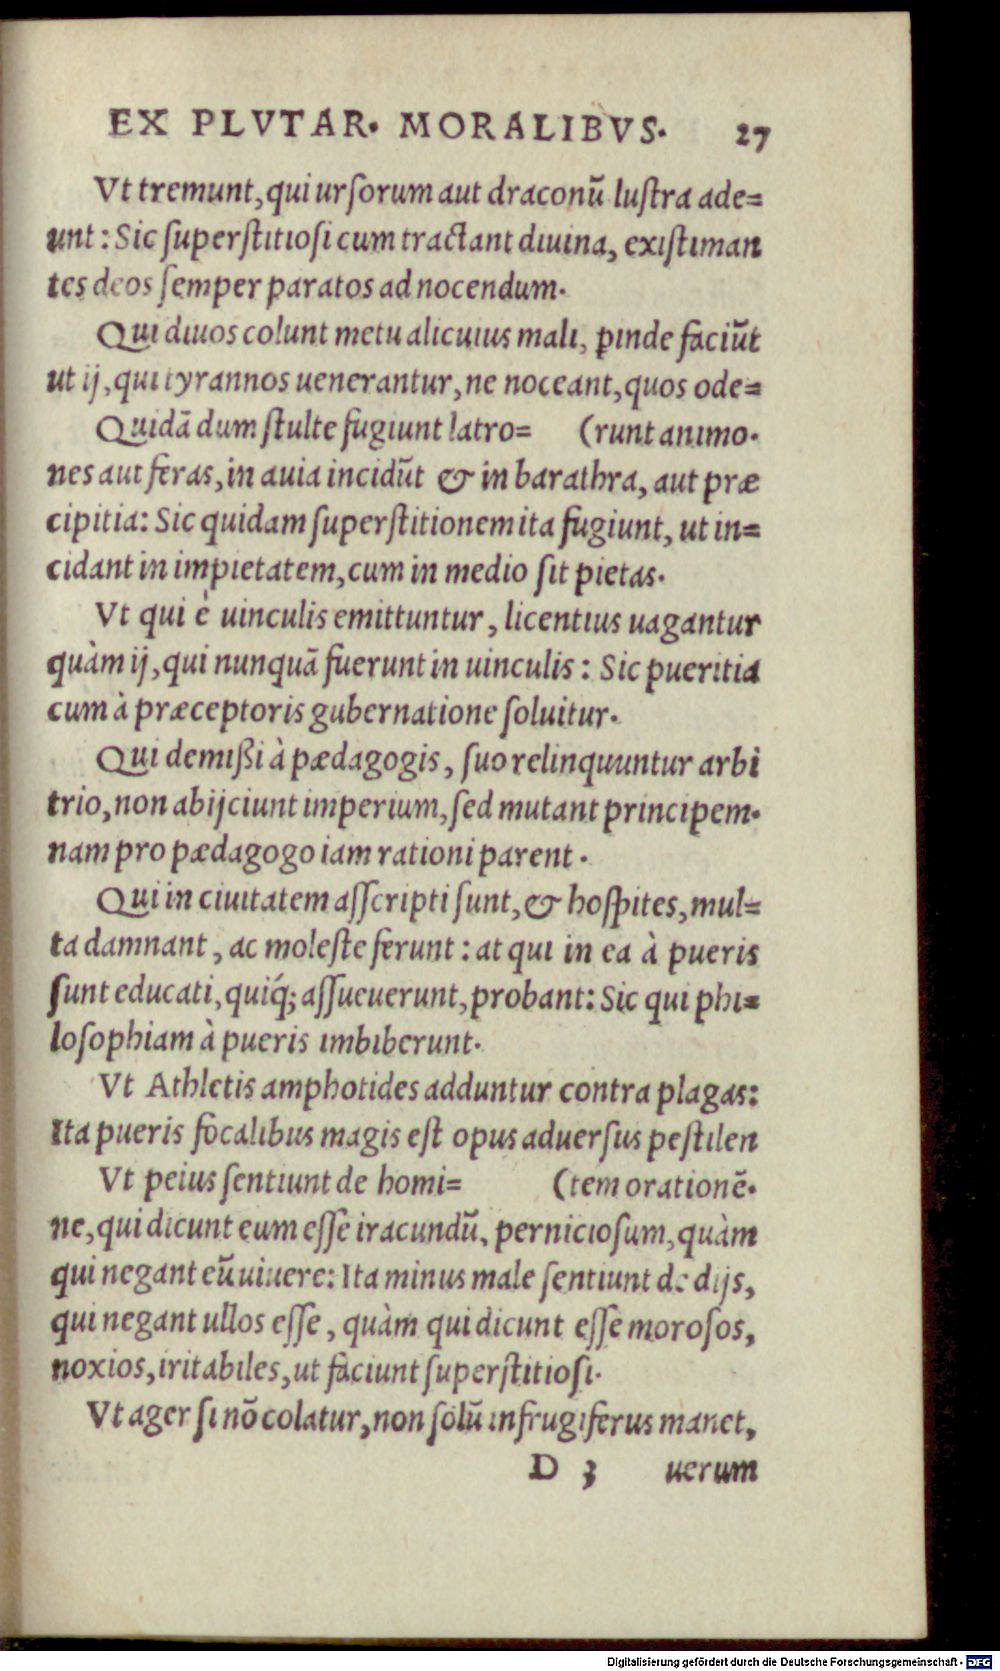 EX PLVTAR. MORALIBVS. 27
Vt tremunt, qui urſorum aut draconū luſtra ade=
unt: Sic ſuperſtitioſi cum tractant diuina, exiſtiman
tes deos ſemper paratos ad nocendum.
Qui diuos colunt metu alicuius mali, ꝑinde faciūt
ut ij, qui tyrannos uenerantur, ne noceant, quos ode=
Quidā dum ſtulte fugiunt latro= (runt animo.
nes aut feras, in auia incidūt & in barathra, aut præ
cipitia: Sic quidam ſuperſtitionem ita fugiunt, ut in=
cidant in impietatem, cum in medio ſit pietas.
Vt qui è uinculis emittuntur, licentius uagantur
quàm ij, qui nunquā fuerunt in uinculis: Sic pueritia
cum à præceptoris gubernatione ſoluitur.
Qui demißi à pædagogis, ſuo relinquuntur arbi
trio, non abijciunt imperium, ſed mutant principem.
nam pro pædagogo iam rationi parent.
Qui in ciuitatem aſſcripti ſunt, & hoſpites, mul=
ta damnant, ac moleſte ferunt: at qui in ea à pueris
ſunt educati, quiq́; aſſueuerunt, probant: Sic qui phi=
loſophiam à pueris imbiberunt.
Vt Athletis amphotides adduntur contra plagas:
Ita pueris focalibus magis eſt opus aduerſus peſtilen
Vt peius ſentiunt de homi= (tem orationē.
ne, qui dicunt eum eſſe iracundū, pernicioſum, quàm
qui negant eū uiuere: Ita minus male ſentiunt de dijs,
qui negant ullos eſſe, quàm qui dicunt eſſe moroſos,
noxios, iritabiles, ut faciunt ſuperſtitioſi.
Vt ager ſi nō colatur, non ſolū infrugiferus manet,
D 3 uerum
Digitalisierung gefördert durch die Deutsche Forschungsgemeinschaft - DFG